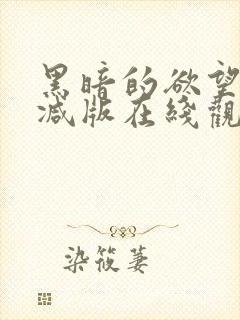 黑暗的欲望
减版在綫觀
染筱萋